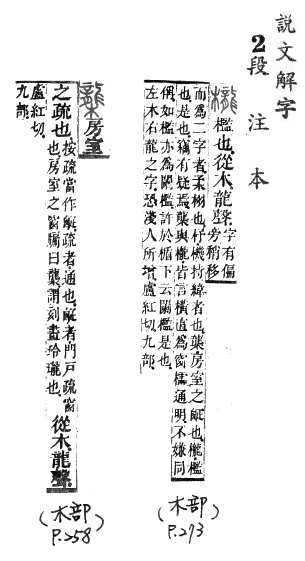 說文解字
2段注本
櫳
檻也。從木。龍聲。字有偏
旁稍移
而為二字者。柔栩也。杼機持緯者也。櫳房室之𤕟也。櫳檻
也。是也。竊有疑焉。櫳與櫳皆言橫直為窗櫺通明。不嫌同
偶。如檻亦為闌檻。許於楯下云闌檻是也。
左木右龍之字。恐淺人所增。盧紅切。九部。
(木部)
P.273
櫳
房室
之疏也。按疏當作𤕟。疏者通也。𤕟者門戶疏窗
也。房室之窗牖曰櫳。謂刻畫玲瓏也。從木。龍聲。
盧紅切。
九部。
(木部)
P.258